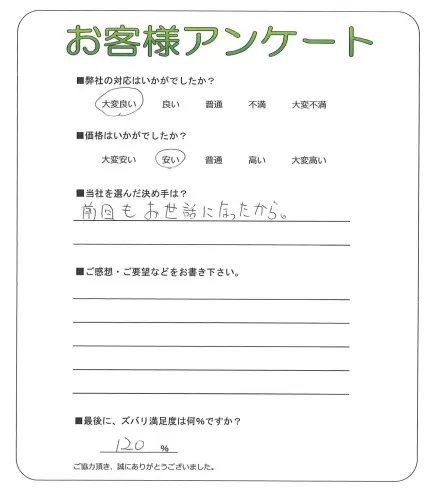 お客様アンケート
■弊社の対応はいかがでしたか？
大変良い 良い 普通 不満 大変不満
■価格はいかがでしたか？
大変安い 安い 普通 高い 大変高い
■当社を選んだ決め手は？
前回もお世話になったから。
■ご感想・ご要望などをお書き下さい。
■最後に、ズバリ満足度は何％ですか？
120 ％
ご協力頂き、誠にありがとうございました。